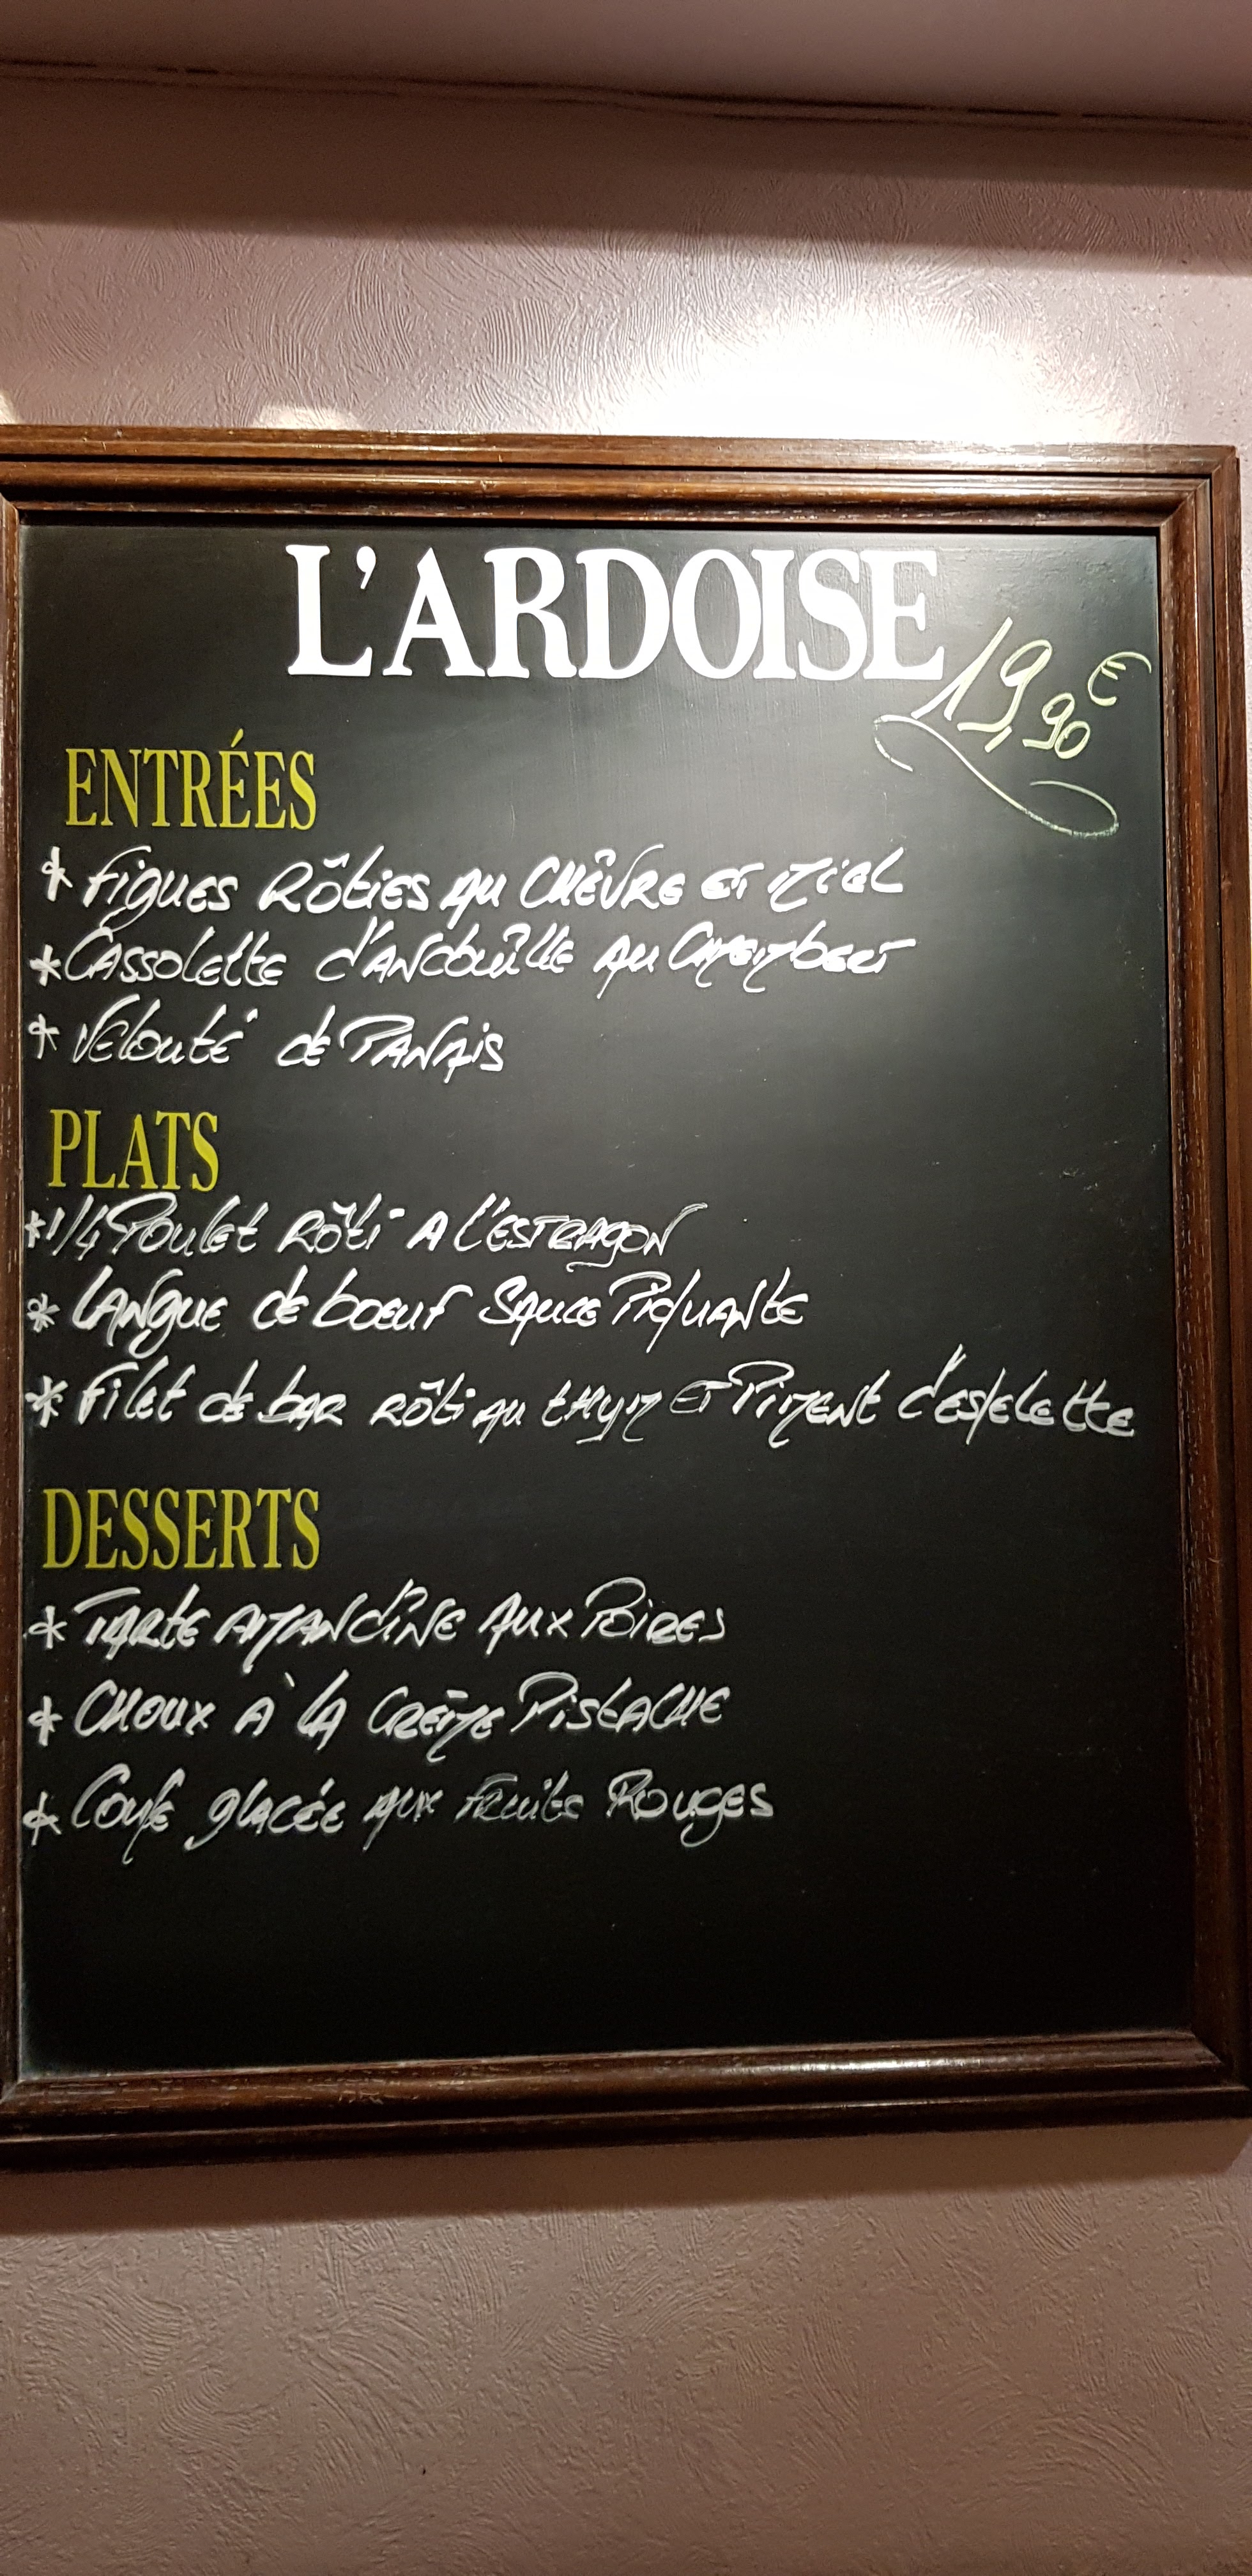 L'ARDOISE
19,90€
ENTRÉES
* Figues Rôties au Chèvre et Miel
* Cassolette d'Andouille au Camembert
* Velouté de Panais
PLATS
* 1/4 Poulet Rôti A l'estragon
* Langue de boeuf Sauce Piquante
* Filet de bar rôti au thym et Piment d'espelette
DESSERTS
* Tarte amandine aux Poires
* Choux à la Crème Pistache
* Coupe glacée aux Fruits Rouges